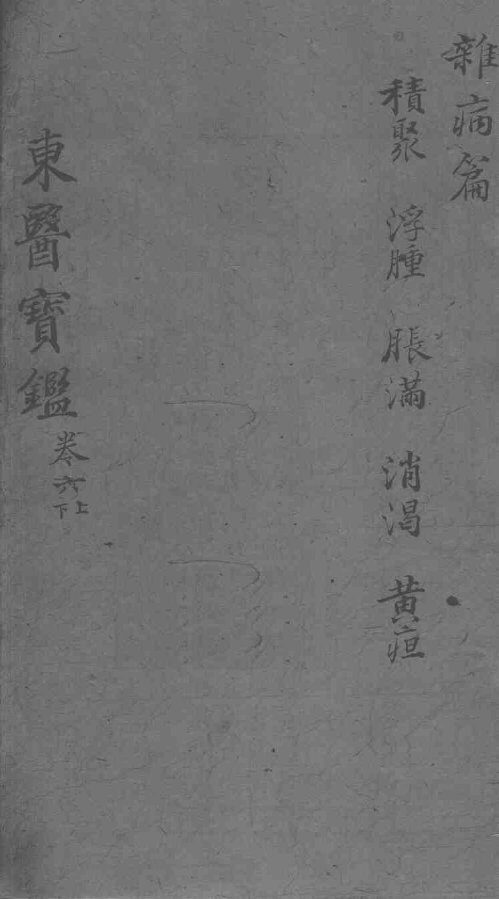 雜病篇
積聚 浮腫 脹滿 消渴 黃疸
東醫寶鑑 卷六 上下